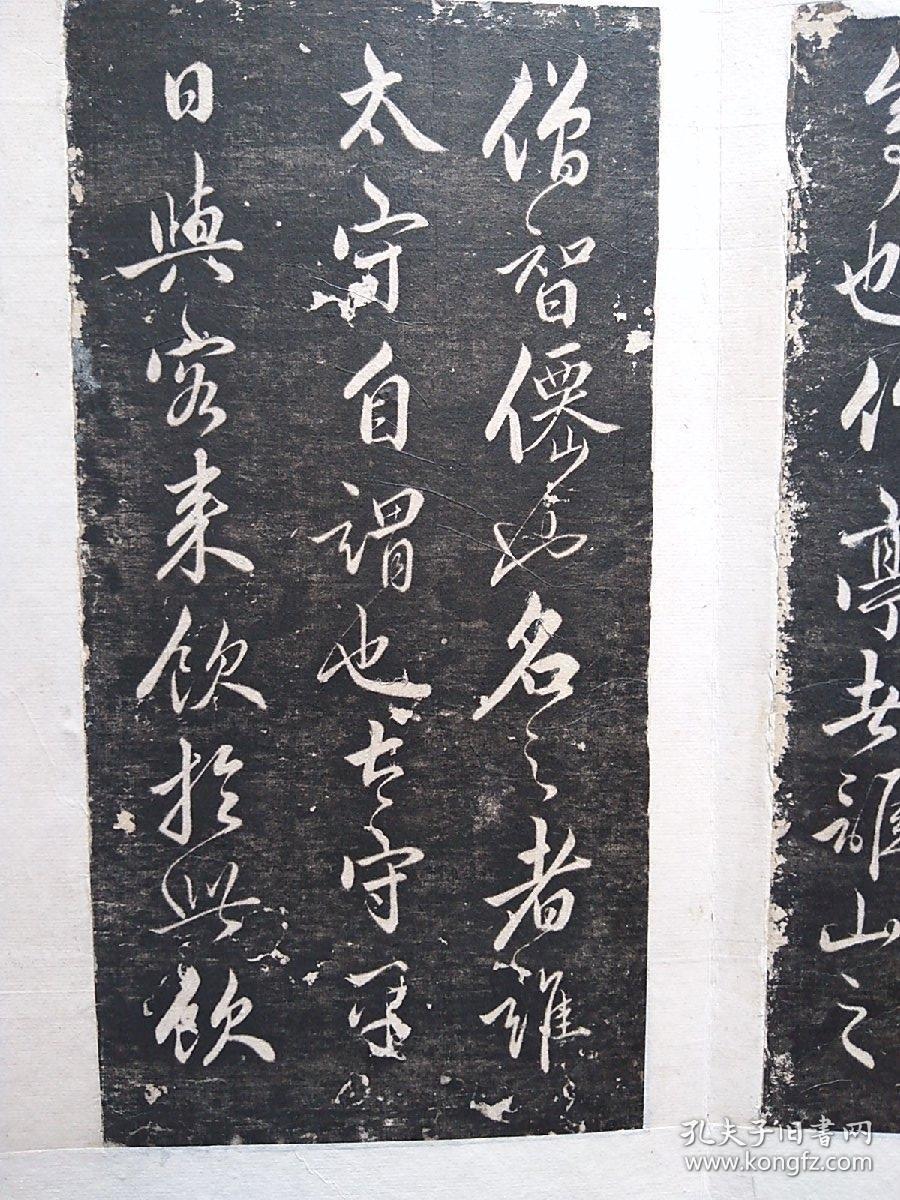 也作亭者誰山之
僧智僊也名之者誰
太守自謂也太守
日與客来飲於此飲
孔夫子旧書网
www.kongfz.com